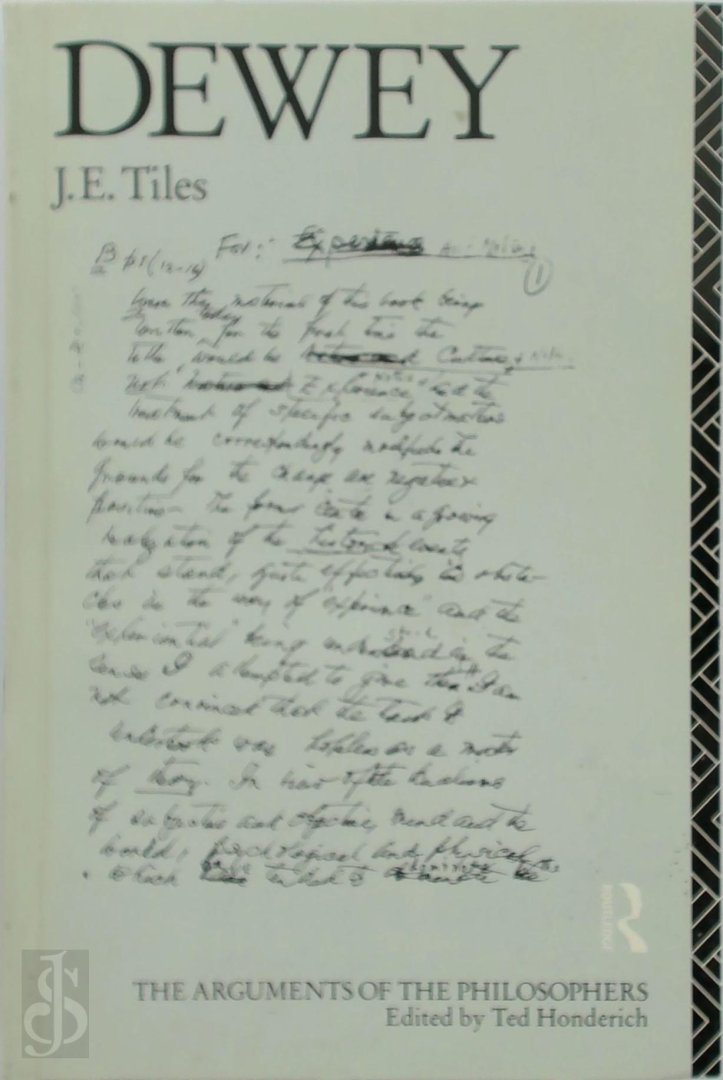 DEWEY
J.E. Tiles
For: Experience
(1)
Were the material of this book being
written today for the first time the
title would be Culture & Nature
not Experience and the
treatment of specific subject matters
would be correspondingly modified the
grounds for the change are negative &
positive The former center in a growing
realization of the historical events
that stand, quite effectively as obsta-
cles in the way of "experience" and the
"experiential" being understood in the
sense I attempted to give them I am
not convinced that the task I
undertook was hopeless as a matter
of theory. In view of the
of subjective and objective, mind and the
world, psychological and physical
which
ROUTLEDGE
THE ARGUMENTS OF THE PHILOSOPHERS
Edited by Ted Honderich
JS